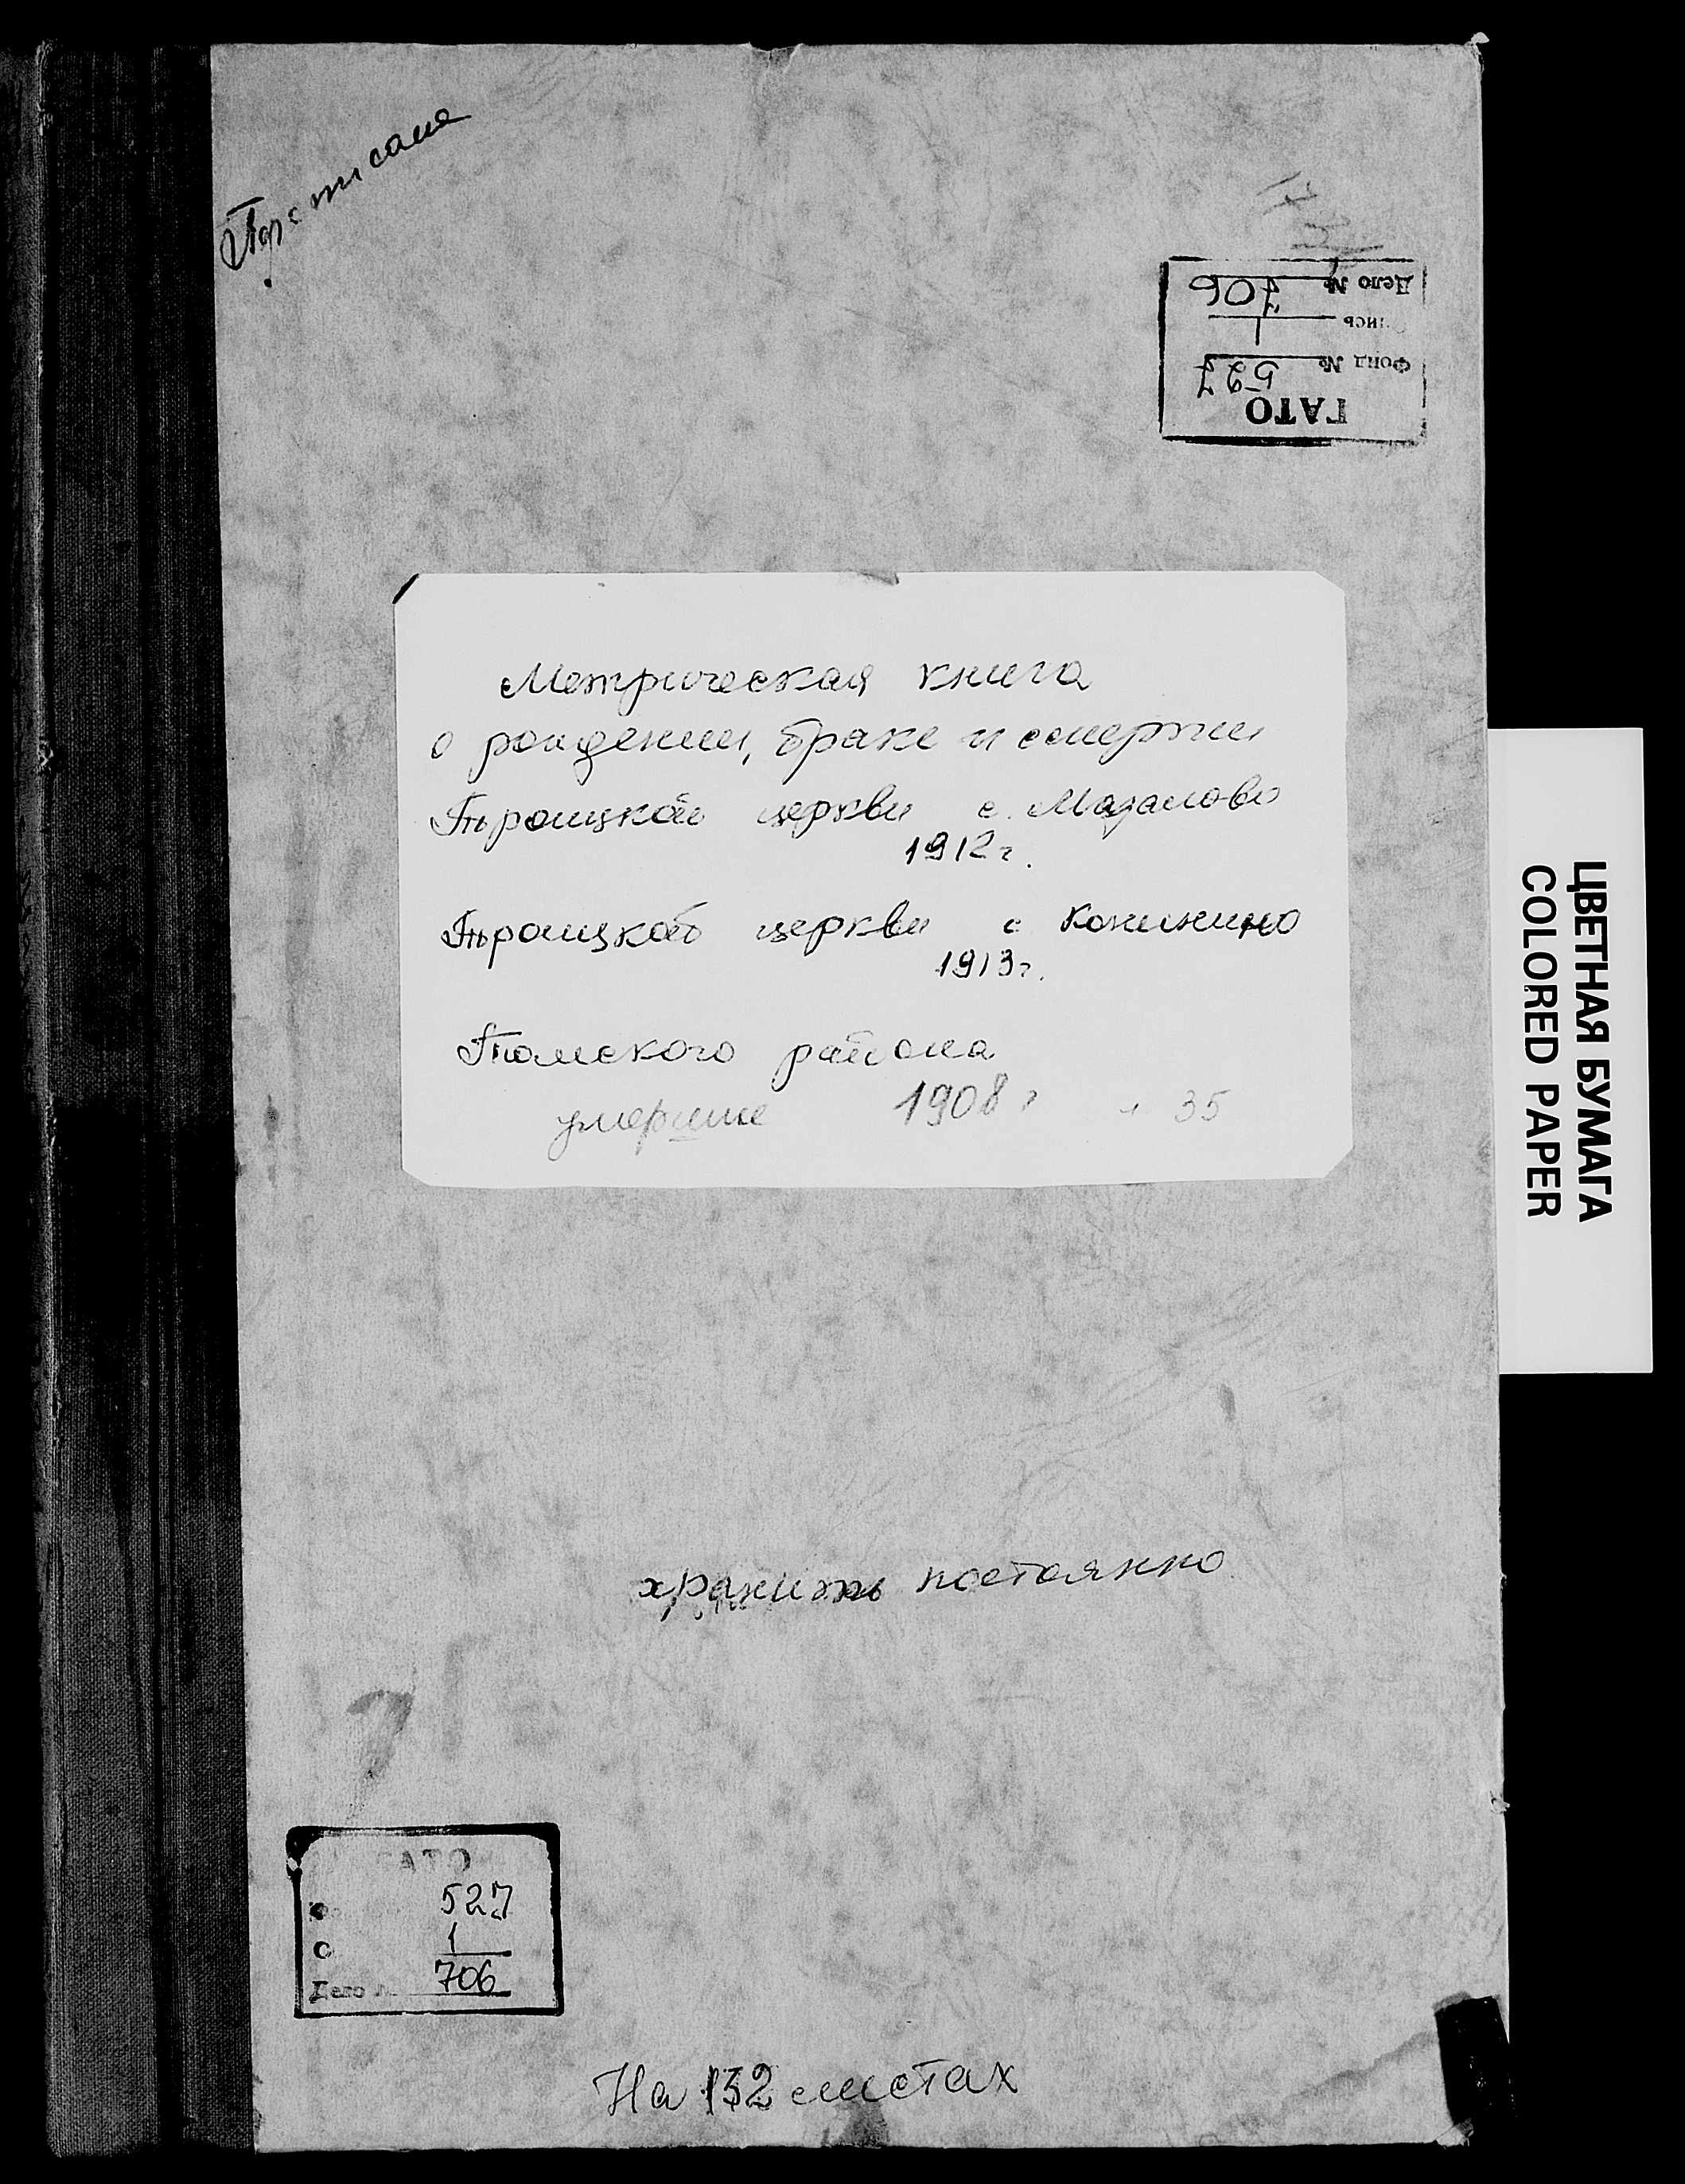 ГАТО
Фонд № 527
пись 1
Дело № 706
Метрическая книга
о рождении, браке и смерти
Троицкой церкви с. Мазалово
1912 г.
Троицкой церкви с Конинино
1913 г.
Томского района
умершие 1908 г 35
ЦВЕТНАЯ БУМАГА
COLORED PAPER
хранить постоянно
АТО
527
О 1
Дело № 706
На 132 листах